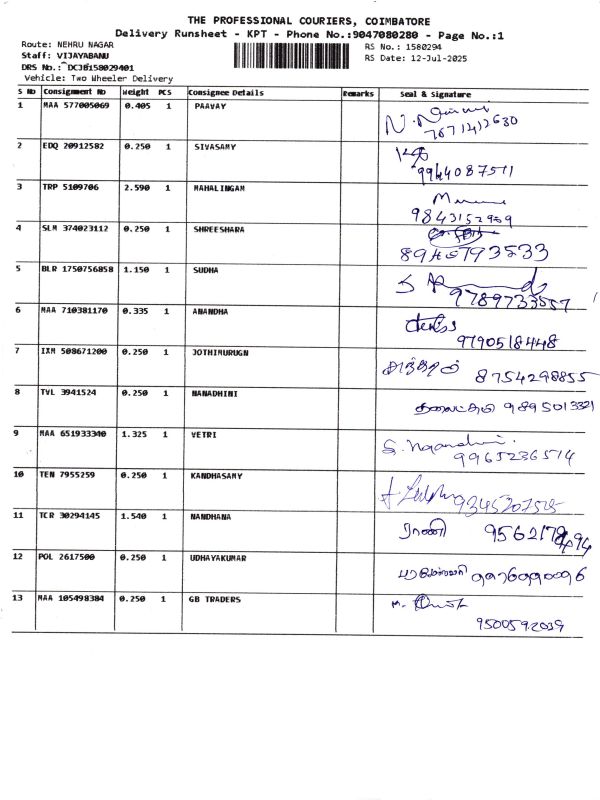 THE PROFESSIONAL COURIERS, COIMBATORE
Delivery Runsheet - KPT - Phone No.:9047080280 - Page No.:1
Route: NEHRU NAGAR
RS No.: 1580294
Staff: VIJAYABANU
RS Date: 12-Jul-2025
DRS No.: DCJB158029401
Vehicle: Two Wheeler Delivery
S No Consignment No Weight PCS Consignee Details Remarks Seal & Signature
1 MAA 577005069 0.405 1 PAAVAY
7671412630
2 EDQ 20912582 0.250 1 SIVASAMY
9944087511
3 TRP 5109706 2.590 1 MAHALINGAM
9843152959
4 SLM 374023112 0.250 1 SHREESHARA
8940793533
5 BLR 1750756858 1.150 1 SUDHA
9789733557
6 MAA 710381170 0.335 1 ANANDHA
9790518448
7 IXM 508671200 0.250 1 JOTHIMURUGN
8754298855
8 TVL 3941524 0.250 1 NANADHINI
9895013321
9 MAA 651933340 1.325 1 VETRI
9965236514
10 TEN 7955259 0.250 1 KANDHASAMY
11 TCR 30294145 1.540 1 NANDHANA
ராணி
12 POL 2617500 0.250 1 UDHAYAKUMAR
13 MAA 105498384 0.250 1 GB TRADERS
9500592039